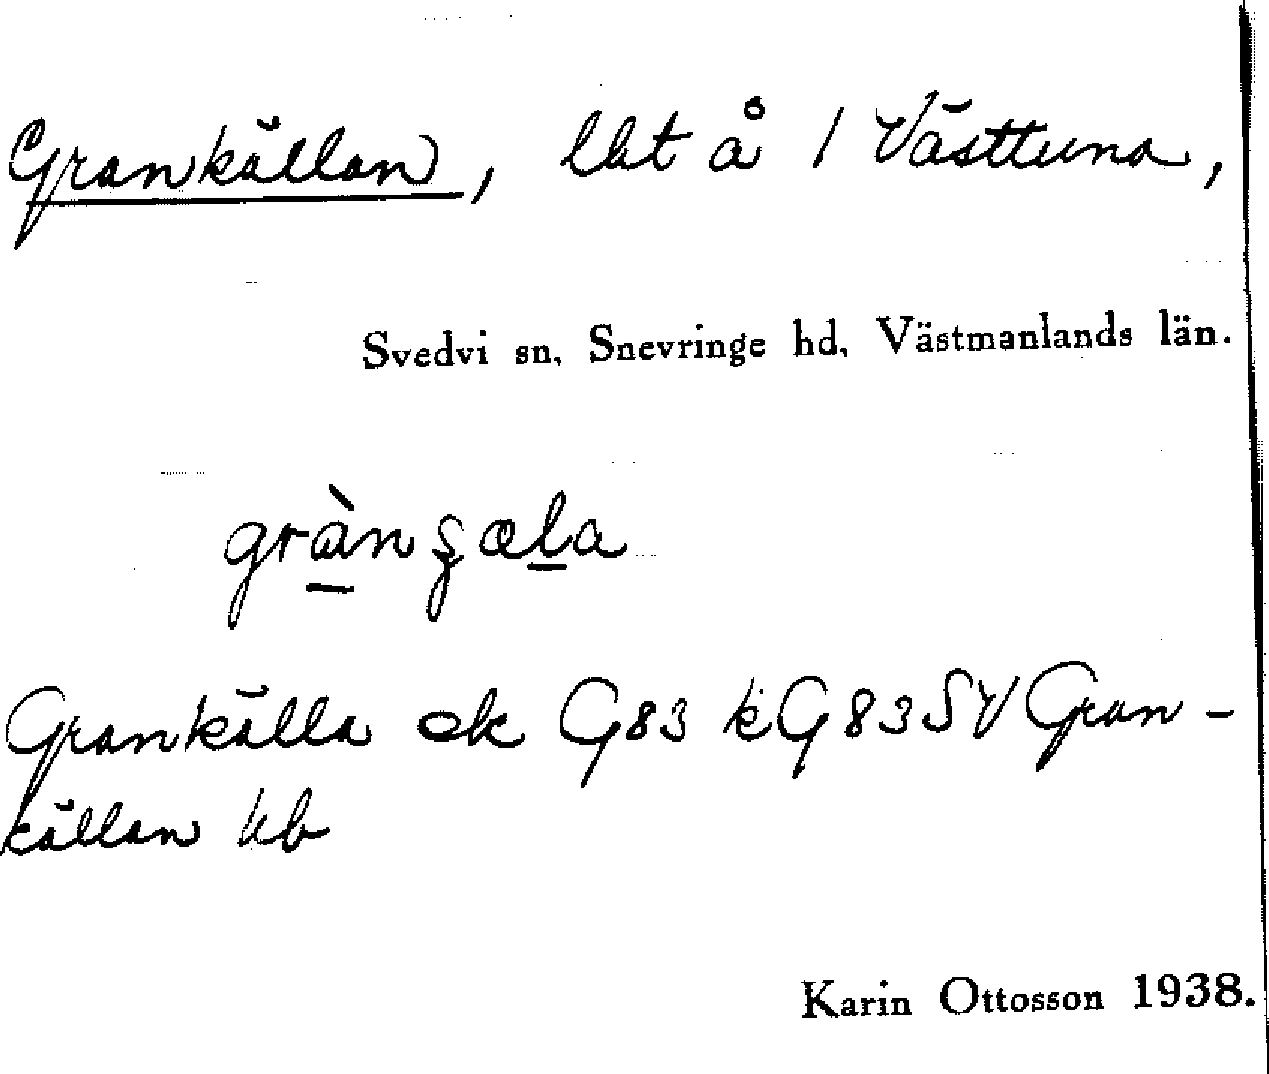 Grankällan, lht å 1 Västtuna,
Svedvi sn, Snevringe hd, Västmanlands län.
grànȿæla
Grankälla ek G83 kG83SV Gran-
källan kb
Karin Ottosson 1938.